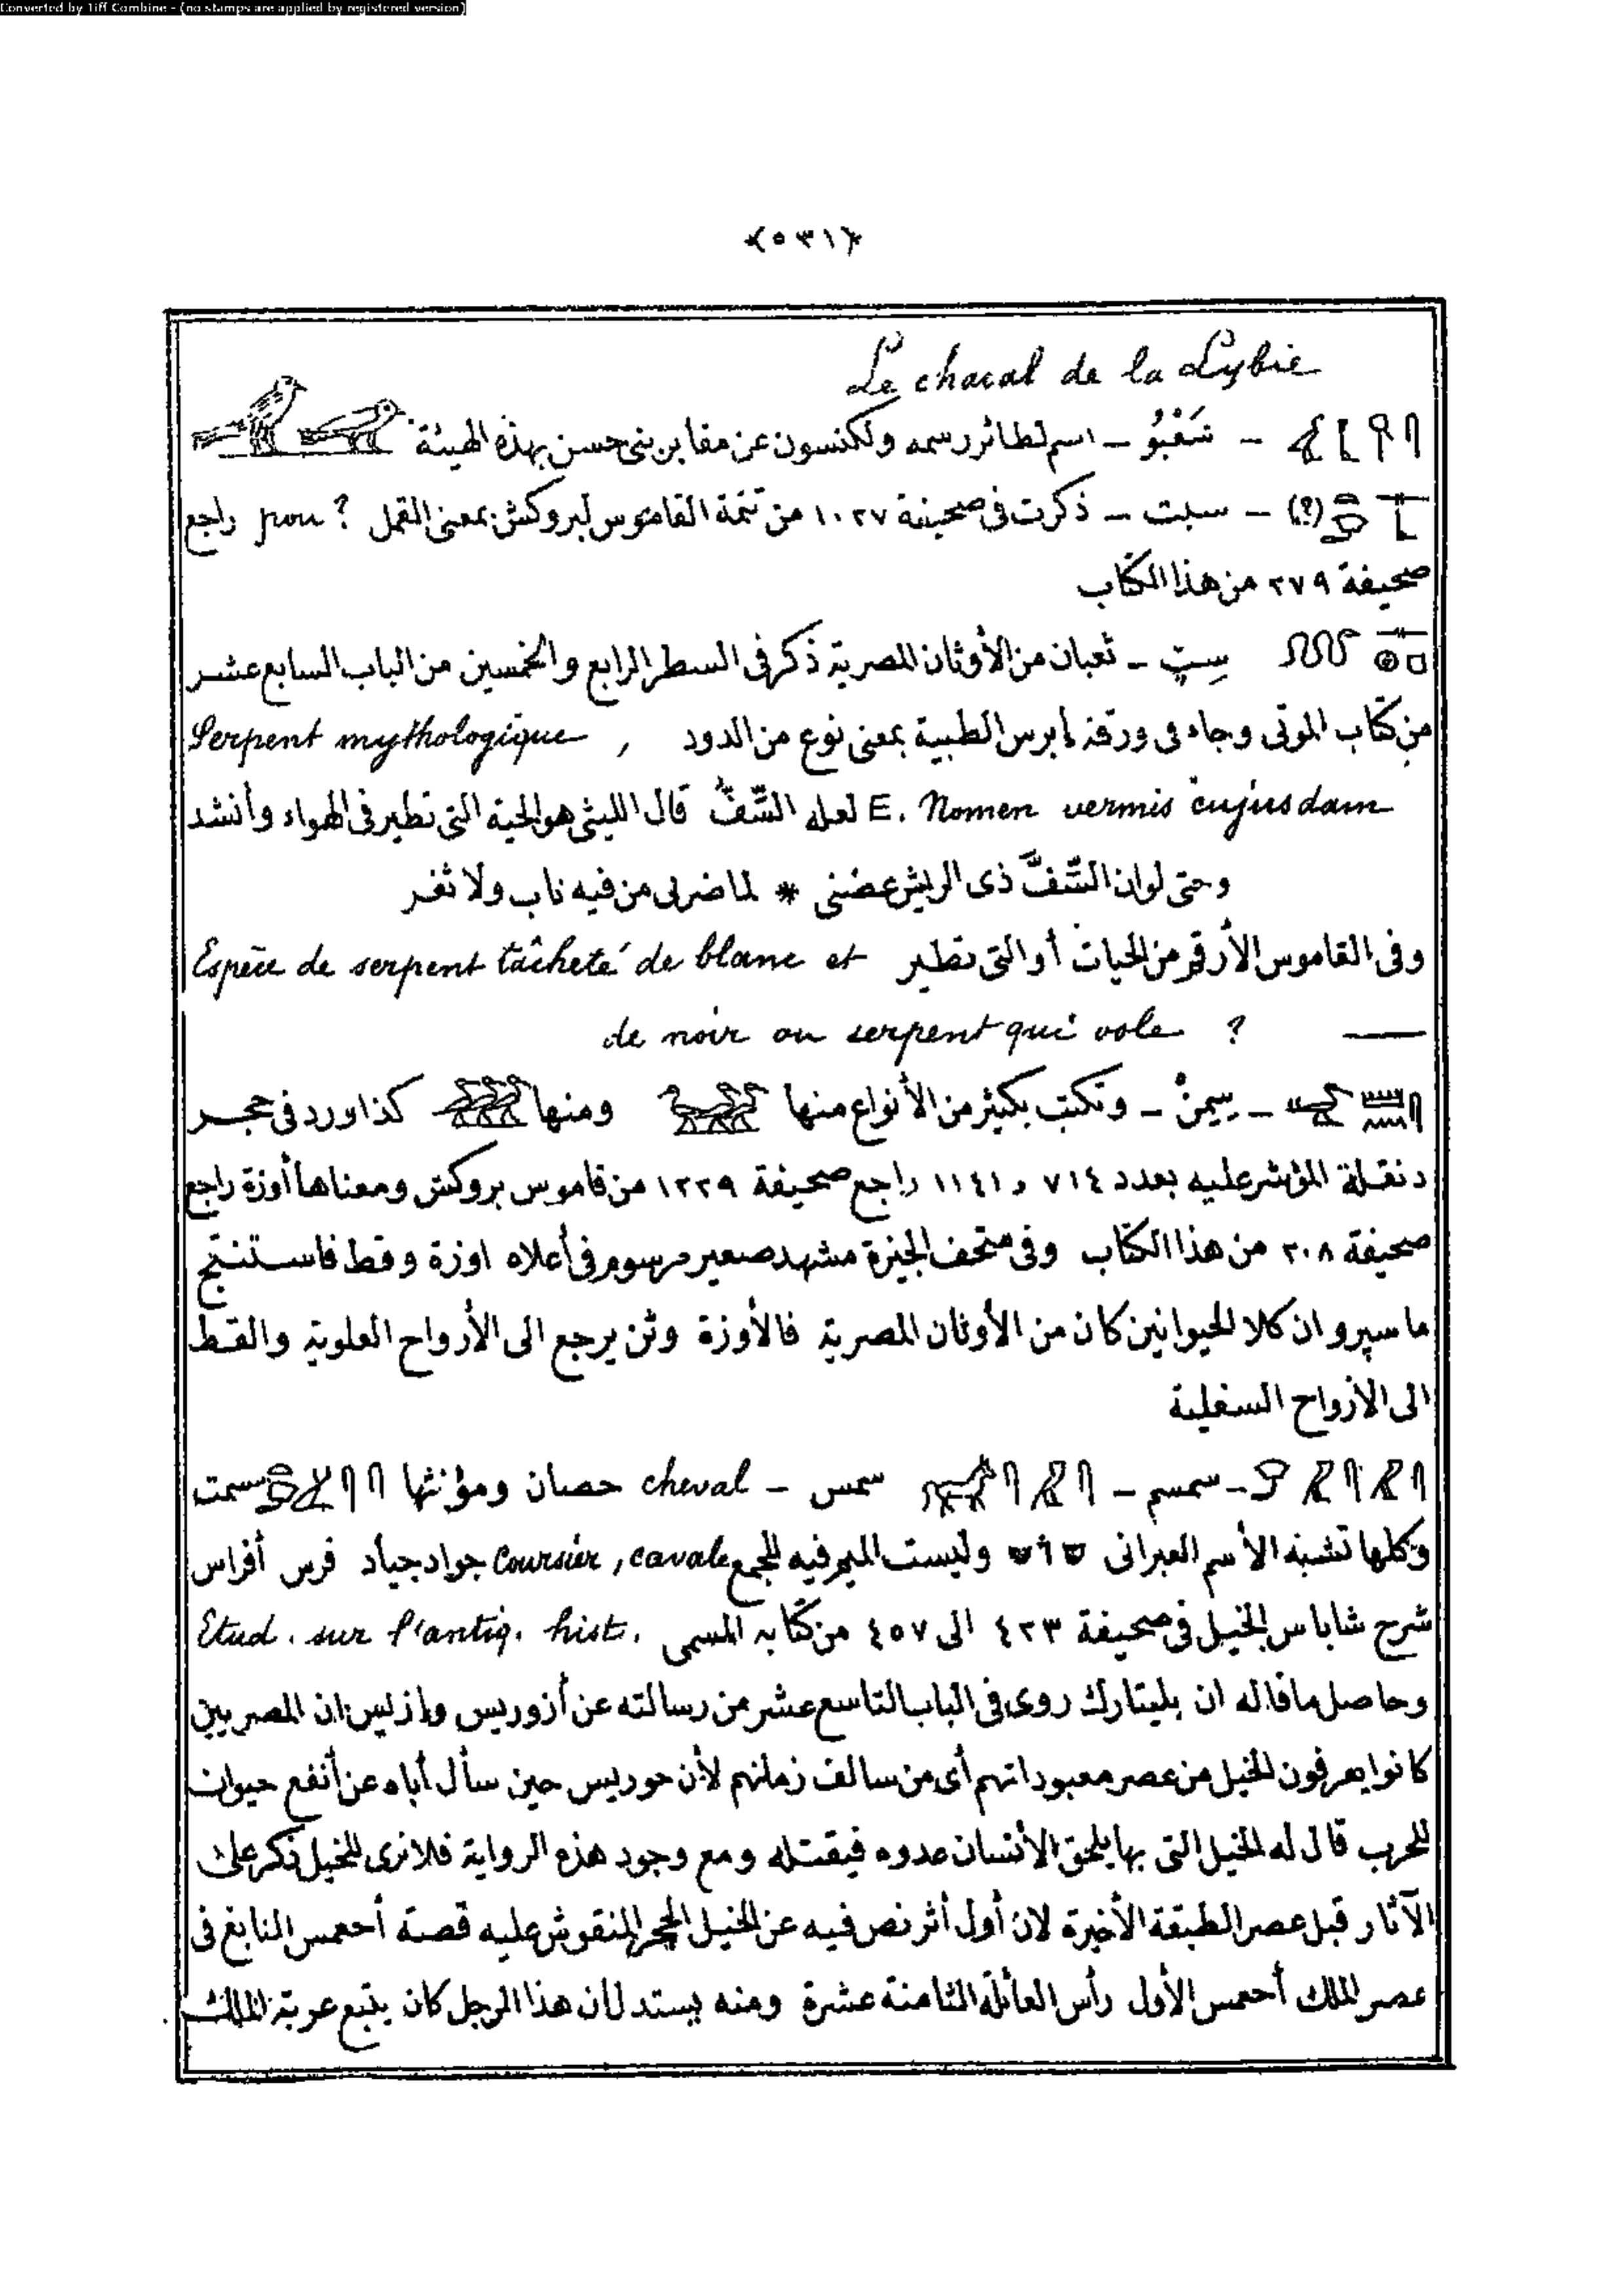 Converted by Tiff Combine - (no stamps are applied by registered version)
﴿٥٣١﴾
Le chacal de la Lybie
– سَعْبُو – اسم لطائر رسمه ولكنسون عن مقابر بنى حسن بهذه الهيئة
(?) – سبت – ذكرت فى صحيفة ١٠٢٧ من تتمة القاموس لبروكش بمعنى القمل ? pou راجع
صحيفة ٢٧٩ من هذا الكتاب
سِبِتٍ – ثعبان من الأوثان المصرية ذكر فى السطر الرابع والخمسين من الباب السابع عشر
من كتاب الموتى وجاء فى ورقة إبرس الطبية بمعنى نوع من الدود , Serpent mythologique
E. Nomen vermis cujusdam لعله السَّفُّ قال الليثى هو الحية التى تطير فى الهواء وأنشد
وحتى لو ان السَّفَّ ذى الريش عضنى * لما ضرنى من فيه ناب ولا ثغر
وفى القاموس الأرقم من الحيات أو التى تطير Espèce de serpent tâcheté de blanc et
de noir ou serpent qui vole ?
– سِمِنْ – وتكتب بكثير من الأنواع منها ومنها كذا ورد فى حجر
دنقلة المؤشر عليه بعدد ٧١٤ و ١١٤١ راجع صحيفة ١٢٢٩ من قاموس بروكش ومعناها أوزة راجع
صحيفة ٢٠٨ من هذا الكتاب وفى متحف الجيزة مشهد صغير مرسوم فى أعلاه اوزة وقط فاستنتج
ماسپرو ان كلا الحيوانين كان من الأوثان المصرية فالأوزة وثن يرجع الى الأرواح العلوية والقط
الى الأرواح السفلية
– سمسم – سمس – cheval حصان ومؤنثها سسمت
وكلها تشبه الأسم العبرانى وليست الميم فيه للجمع Coursier, cavale جواد جياد فرس أفراس
شرح شاباس الخيل فى صحيفة ٤٢٣ الى ٤٥٧ من كتابه المسمى Etud. sur l'antiq. hist.
وحاصل ما قاله ان بليتارك روى فى الباب التاسع عشر من رسالته عن أزوريس وإزيس ان المصريين
كانوا يعرفون الخيل من عصر معبوداتهم أى من سالف زمانهم لأن حوريس حين سأل أباه عن أنفع حيوان
للحرب قال له الخيل التى بها يلحق الأنسان عدوه فيقتله ومع وجود هذه الرواية فلا نرى للخيل ذكر على
الآثار قبل عصر الطبقة الأخيرة لان أول أثر نص فيه عن الخيل الحجر المنقوش عليه قصة أحعمس النابغ فى
عصر الملك أحعمس الأول رأس العائلة الثامنة عشرة ومنه يستدل ان هذا الرجل كان يتبع عربة الملك